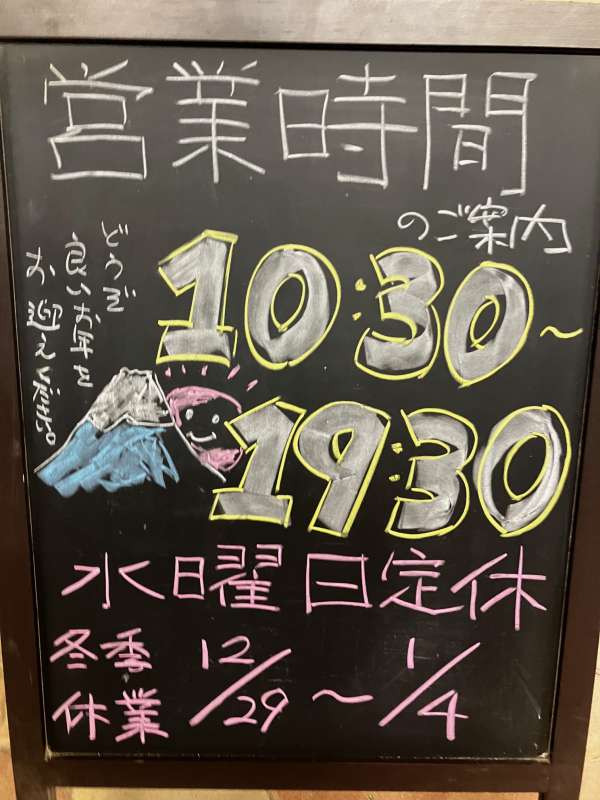 営業時間
のご案内
10:30~
19:30
どうぞ
良いお年を
お迎えください。
水曜日定休
冬季 12/29~1/4
休業